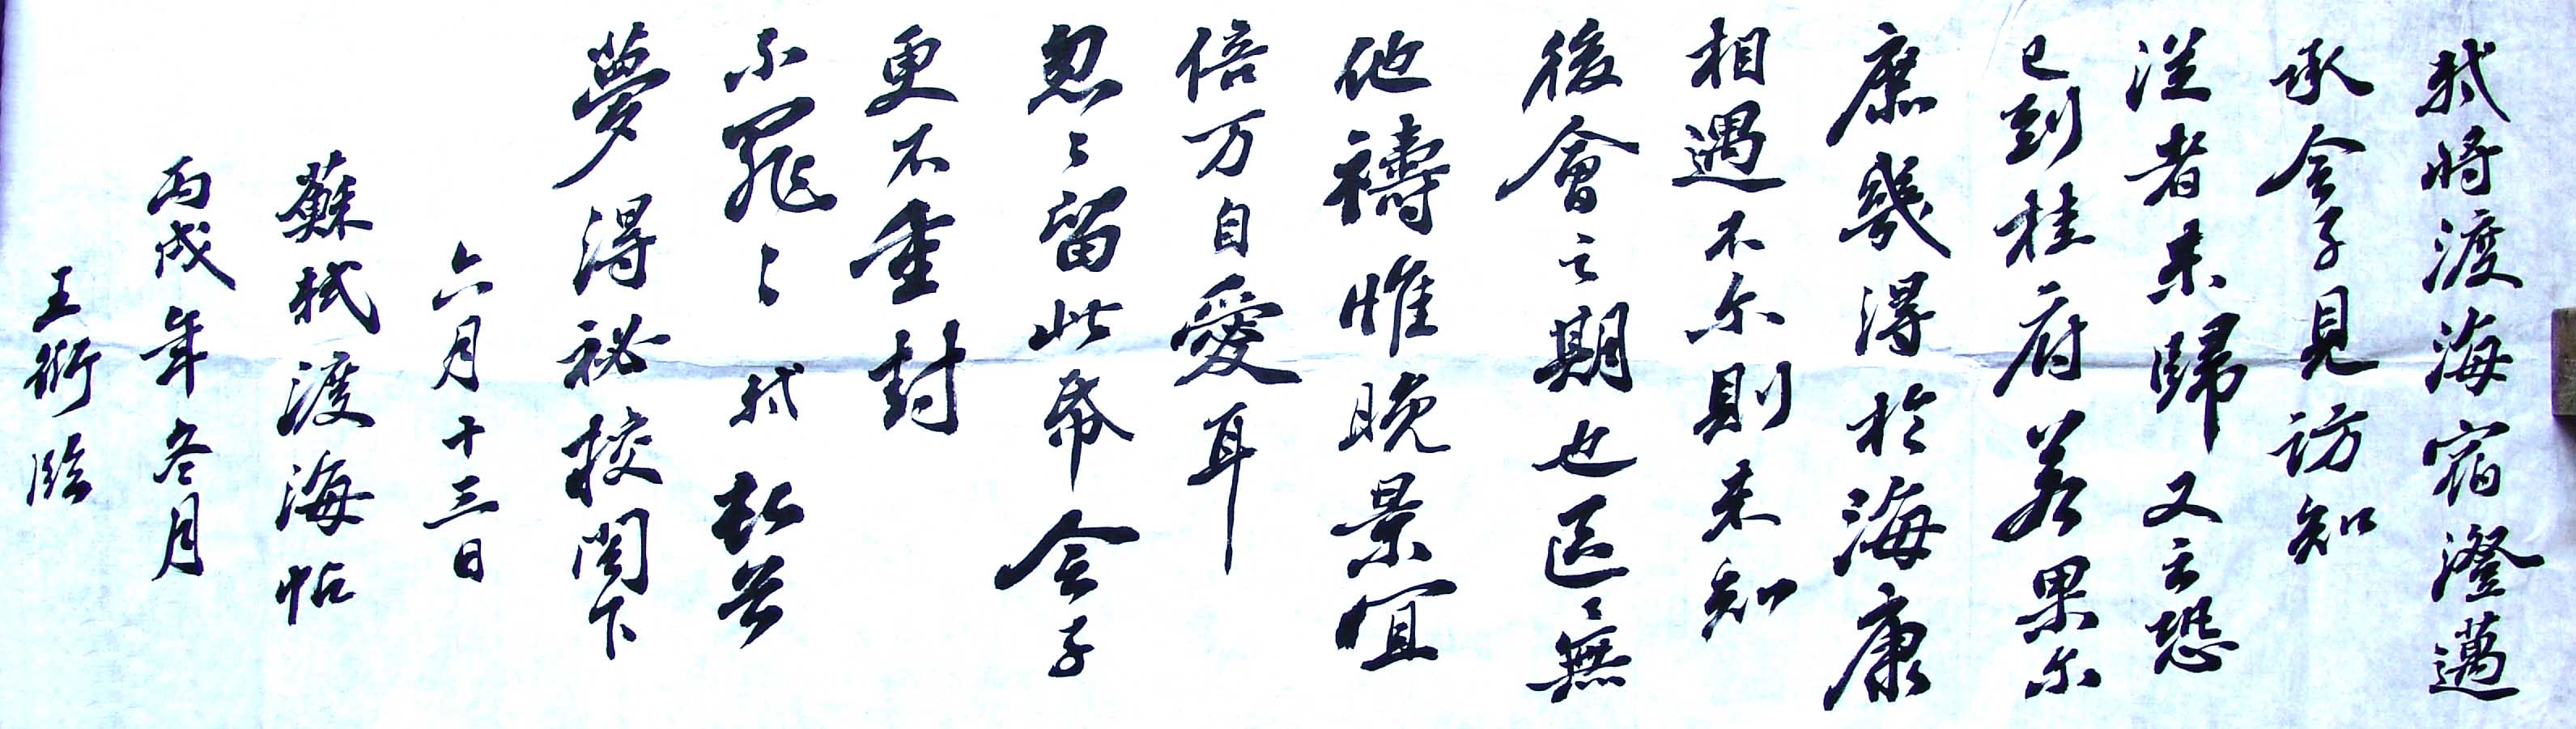 軾將渡海宿澄邁
承令子見訪知
從者未歸又云恐
已到桂府若果尔
庶幾得於海康
相遇不尔則未知
後會之期也區〻無
他禱惟晚景宜
倍万自愛耳
忽〻留此帋令子
更不重封
不罪〻軾頓首
夢得祕校閣下
六月十三日
蘇軾渡海帖
丙戌年冬月
王衍臨